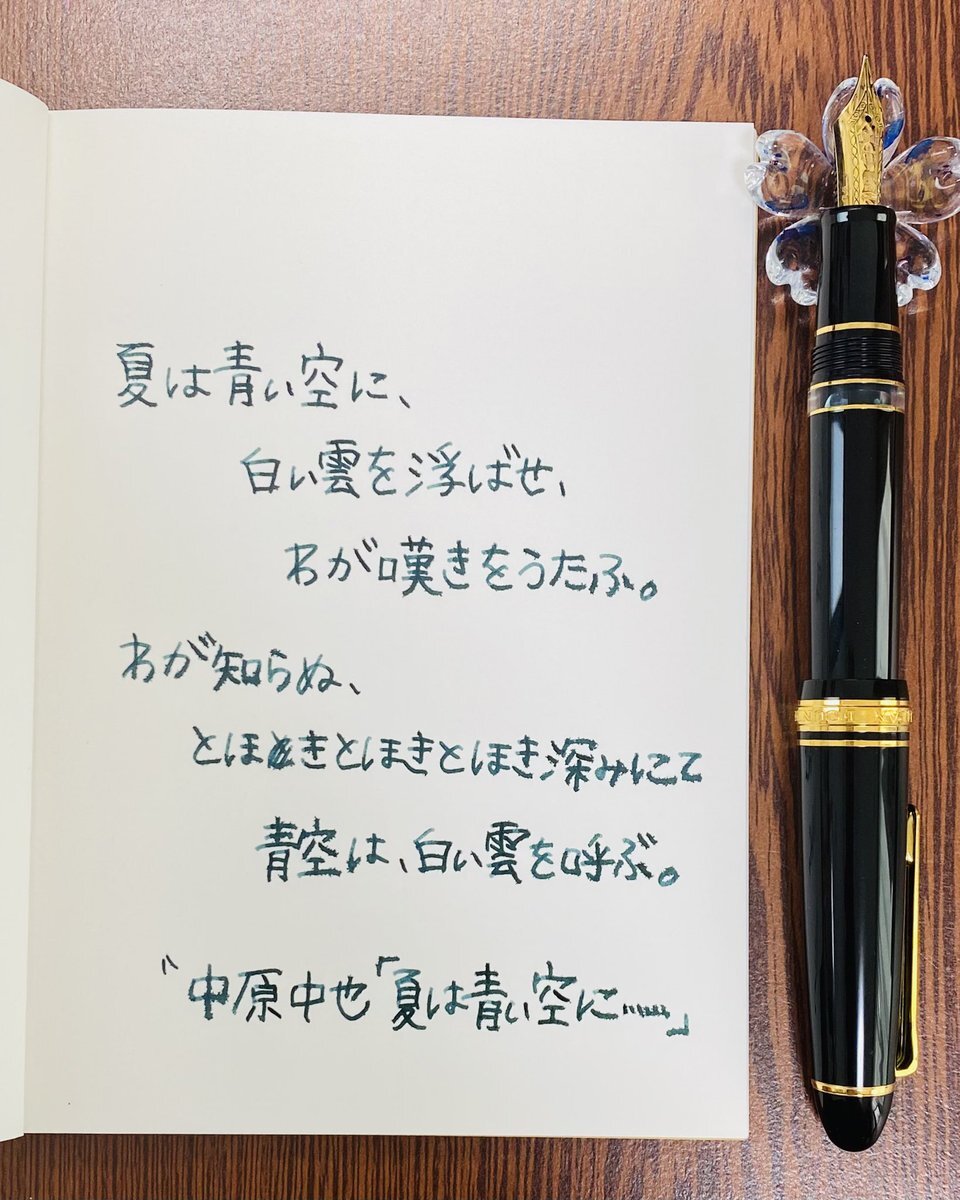 夏は青い空に、
白い雲を浮ばせ、
わが嘆きをうたふ。
わが知らぬ、
とほきとほきとほき深みにて
青空は、白い雲を呼ぶ。
〝中原中也「夏は青い空に……」